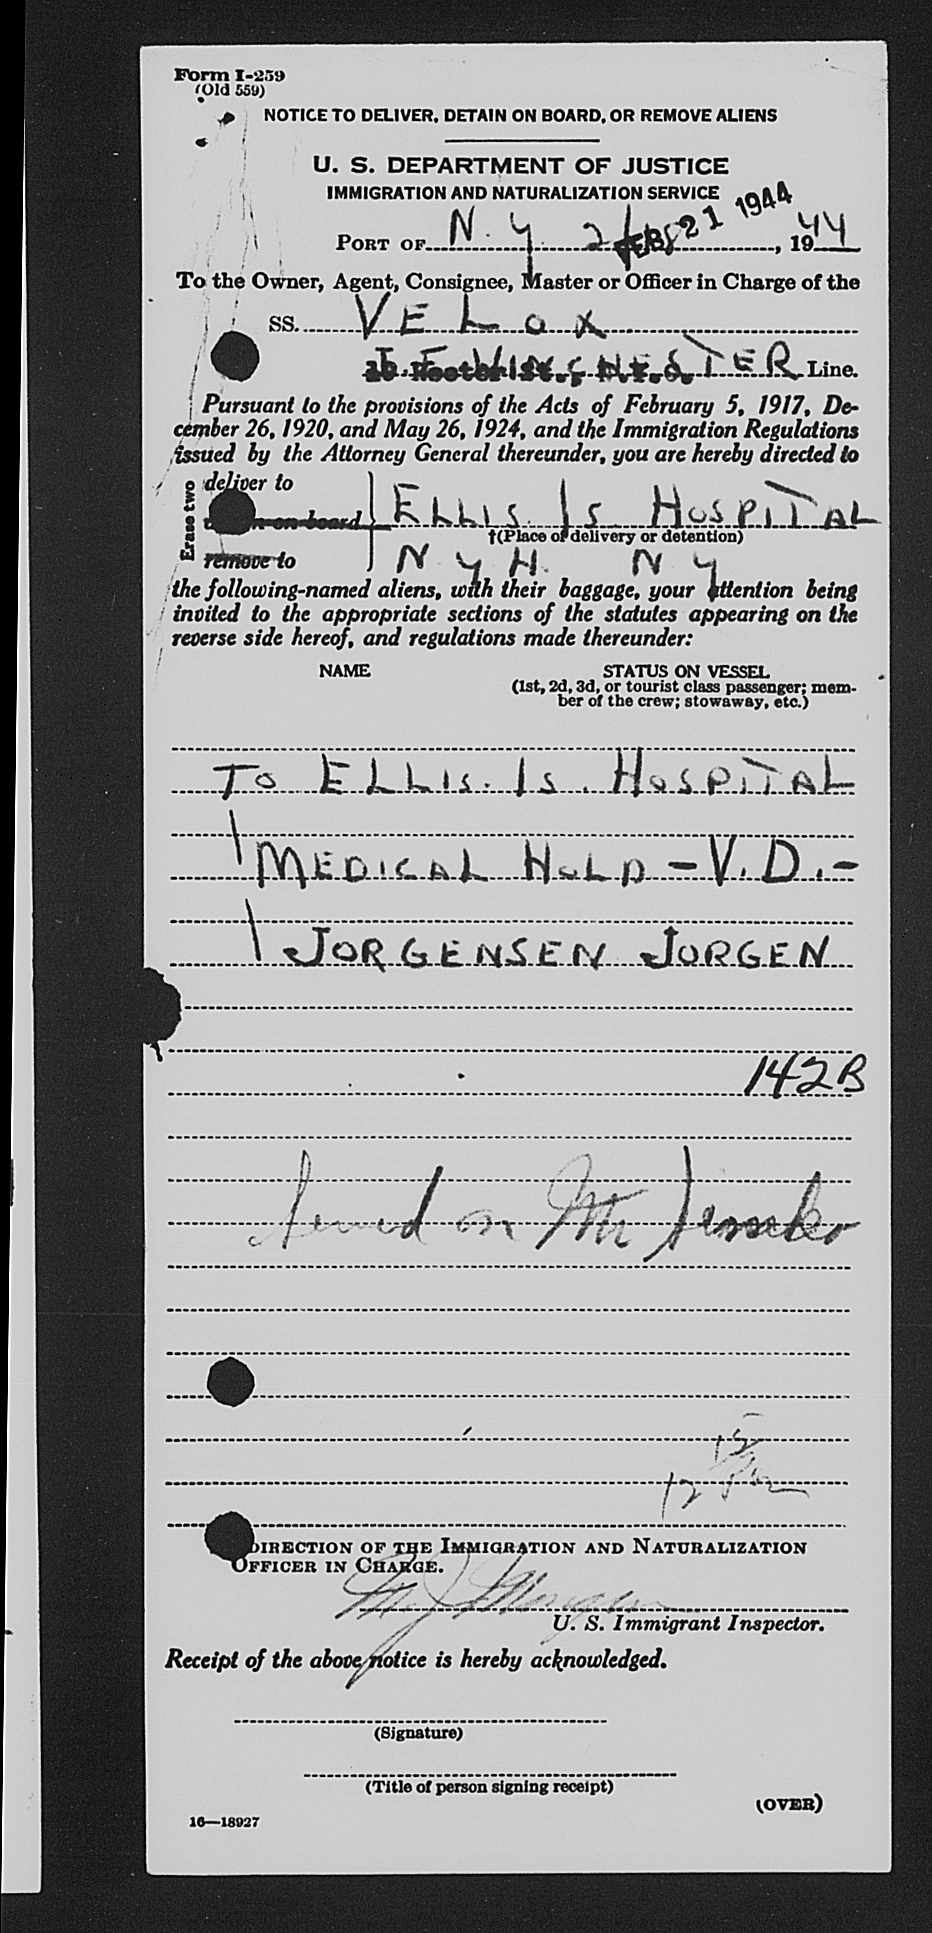 Form I-259
(Old 559)
NOTICE TO DELIVER, DETAIN ON BOARD, OR REMOVE ALIENS
U. S. DEPARTMENT OF JUSTICE
IMMIGRATION AND NATURALIZATION SERVICE
FEB 21 1944
PORT OF N. Y. , 1944
To the Owner, Agent, Consignee, Master or Officer in Charge of the
SS. VELOX
Line.
Pursuant to the provisions of the Acts of February 5, 1917, De-
cember 26, 1920, and May 26, 1924, and the Immigration Regulations
issued by the Attorney General thereunder, you are hereby directed to
Erase two
deliver to
on board ELLIS. IS HOSPITAL
†(Place of delivery or detention)
remove to N Y H. N Y
the following-named aliens, with their baggage, your attention being
invited to the appropriate sections of the statutes appearing on the
reverse side hereof, and regulations made thereunder:
NAME STATUS ON VESSEL
(1st, 2d, 3d, or tourist class passenger; mem-
ber of the crew; stowaway, etc.)
TO ELLIS. IS. HOSPITAL
MEDICAL HOLD - V. D. -
JORGENSEN JORGEN
142B
on Mr
12
DIRECTION OF THE IMMIGRATION AND NATURALIZATION
OFFICER IN CHARGE.
U. S. Immigrant Inspector.
Receipt of the above notice is hereby acknowledged.
(Signature)
(Title of person signing receipt)
(OVER)
16—18927